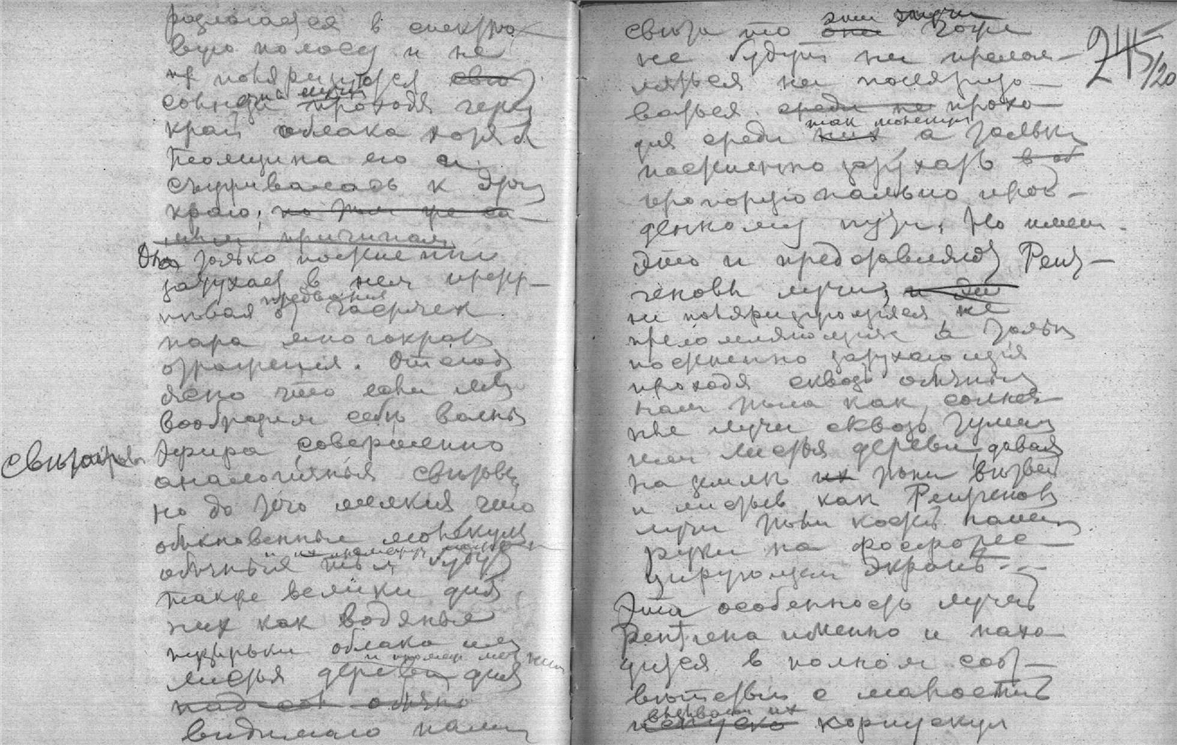 разлагается в спектра-
вую полосу и не
не поляризуется свет
солнца проходя через
край облака хотя б
толщина его и
съуживалась к этому
краю, но тем же са-
мым причинам
Она только постепенно
затухает в нем преры-
пребывания
пара многократ
отражения. Отсюда
ясно что если мы
вообразим себе волны
Эфира совершенно
аналогичныя световым
но до того мелкия что
обыкновенные молекулы
обычных тел будут
также велики для
них как водяные
пузырьки облака или
листья дерева для
видимаго нами
света то эти лучи тоже
не будут ни прелом-
ляться ни поляризо-
ваться среди не прохо-
дя среди них а только
так молекул
постепенно затухать в об
пропорционально прой-
денному пути. Но имен.
это и представляют Рент-
геновы лучи, и эти
не поляризующиеся не
преломляющияся а только
постепенно затухающия
проходя сквозь обычныя
нам тела как солнеч-
ные лучи сквозь туман
или листья дерева давая
на земле их тени ветвей
и листьев как Рентгеновы
лучи тени костей нашей
руки на фосфорес-
цирующем экране. —
Эта особенность лучей
Рентгена именно и нахо-
дится в полном соот-
ветствии с малостью
вызвавших их
корпускул
245/20